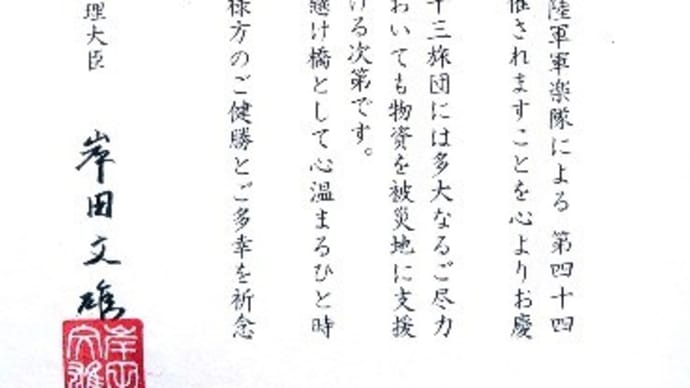 陸軍軍楽隊による 第四十四
催されますことを心よりお慶
十三旅団には多大なるご尽力
おいても物資を被災地に支援
ける次第です。
懸け橋として心温まるひと時
様方のご健勝とご多幸を祈念
理大臣 岸田文雄
岸田
文雄